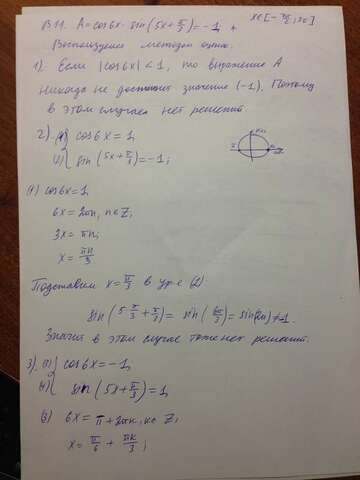 В11. A = cos6x · sin(5x + π/3) = -1, x∈[-π/2; 2π]
Воспользуемся методом оценки.
1). Если |cos6x| < 1, то выражение A
никогда не достигнет значение (-1). Поэтому
в этом случае нет решений.
2). (1) { cos6x = 1,
(2) { sin(5x + π/3) = -1;
(1) cos6x = 1,
6x = 2πn, n∈Z;
3x = πn;
x = πn/3
Подставим x = π/3 в ур-е (2)
sin(5·π/3 + π/3) = sin(6π/3) = sin(2π) ≠ -1.
Значит в этом случае тоже нет решений.
3). (3) { cos6x = -1,
(4) { sin(5x + π/3) = 1,
(3) 6x = π + 2πk, k∈Z;
x = π/6 + πk/3;